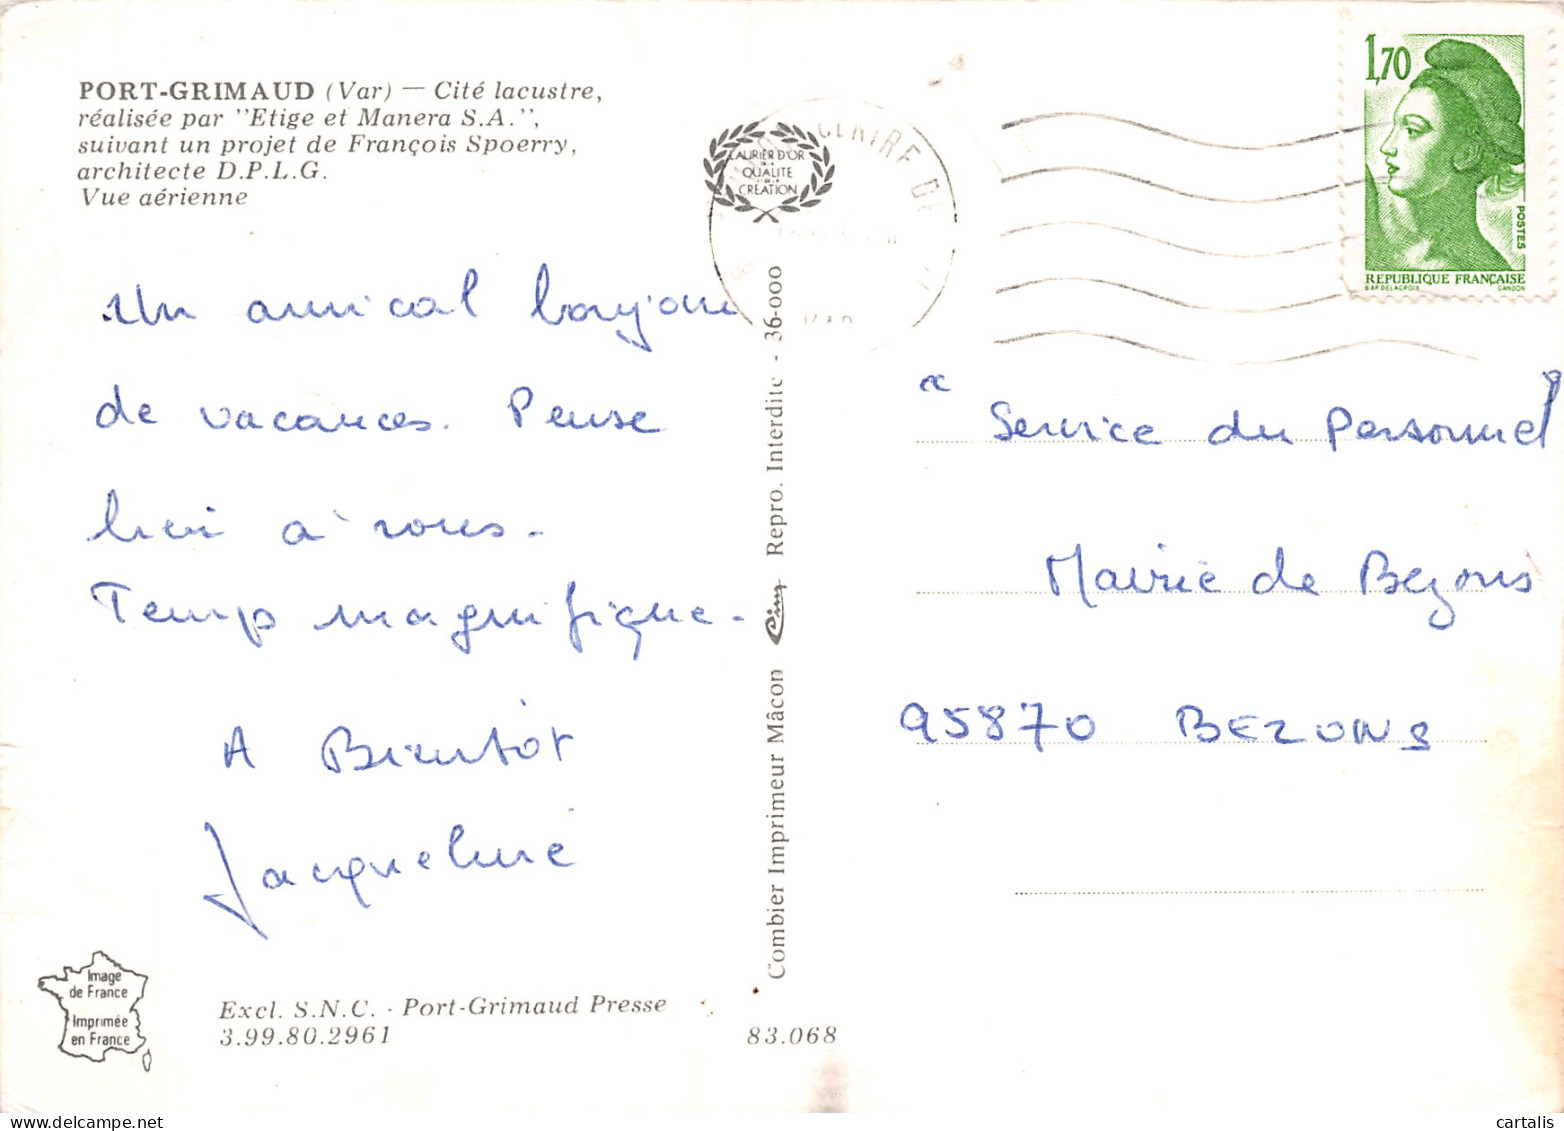 PORT-GRIMAUD (Var) — Cité lacustre,
réalisée par "Etige et Manera S.A.",
suivant un projet de François Spoerry,
architecte D.P.L.G.
Vue aérienne
LAURIER D'OR
DE LA
QUALITE
DE LA
CREATION
CENTRE DE
1,70
POSTES
REPUBLIQUE FRANÇAISE
D'AP. DELACROIX GANDON
Un amical bonjour
de vacances. Pense
bien à vous.
Temps magnifique.
A Bientôt
Jacqueline
Service du Personnel
Mairie de Bezons
95870 BEZONS
Combier Imprimeur Mâcon Cim Repro. Interdite - 36-000
Image
de France
Imprimée
en France
Excl. S.N.C. - Port-Grimaud Presse
3.99.80.2961
83.068
www.delcampe.net
cartalis